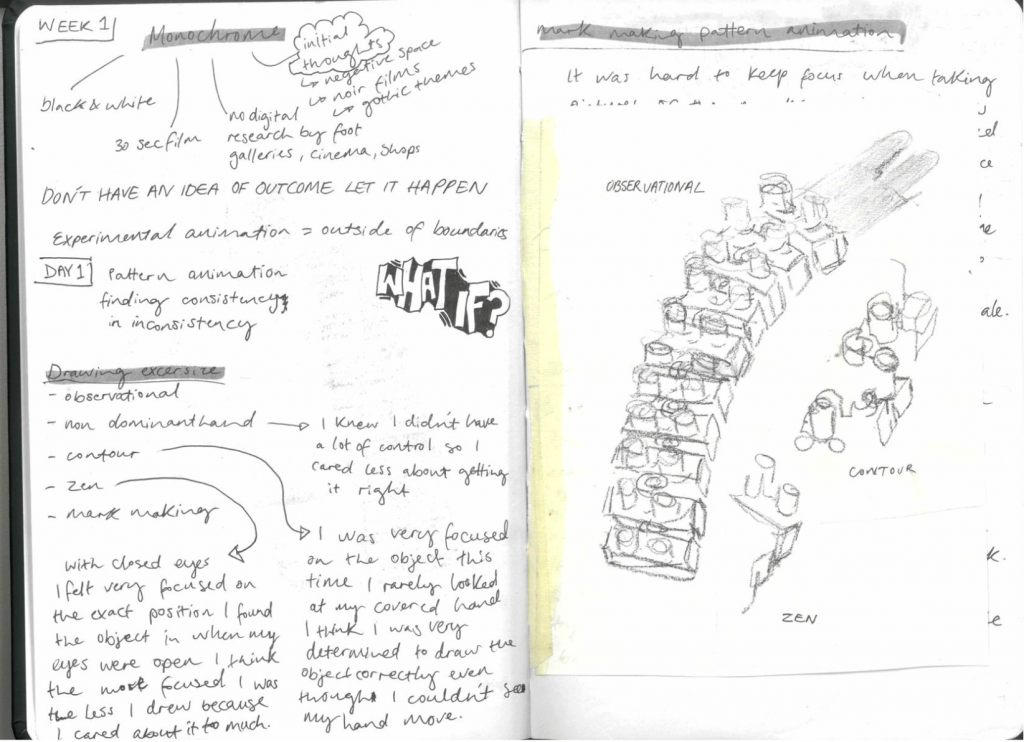 WEEK 1
Monochrome
initial
thoughts
↳ negative space
↳ noir films
↳ gothic themes
black & white
30 sec film
no digital
research by foot
galleries, cinema, shops
DON'T HAVE AN IDEA OF OUTCOME LET IT HAPPEN
Experimental animation = outside of boundaries
DAY 1
Pattern animation
finding consistency
in inconsistency
WHAT IF?
Drawing excersize
- observational
- non dominant hand
- contour
- zen
- mark making
I knew I didn't have
a lot of control so I
cared less about getting
it right
with closed eyes
I felt very focused on
the exact position I found
the object in when my
eyes were open I think
the most focused I was
the less I drew because
I cared about it too much.
I was very focused
on the object this
time I rarely looked
at my covered hand
I think I was very
determined to draw the
object correctly even
though I couldn't see
my hand move.
mark making pattern animation
It was hard to keep focus when taking
OBSERVATIONAL
ale.
CONTOUR
ZEN